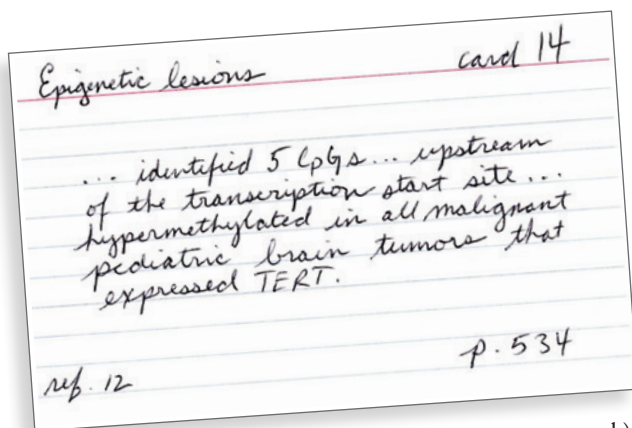 Epigenetic lesions card 14
... identified 5 CpGs ... upstream
of the transcription start site ...
hypermethylated in all malignant
pediatric brain tumors that
expressed TERT.
ref. 12 p. 534